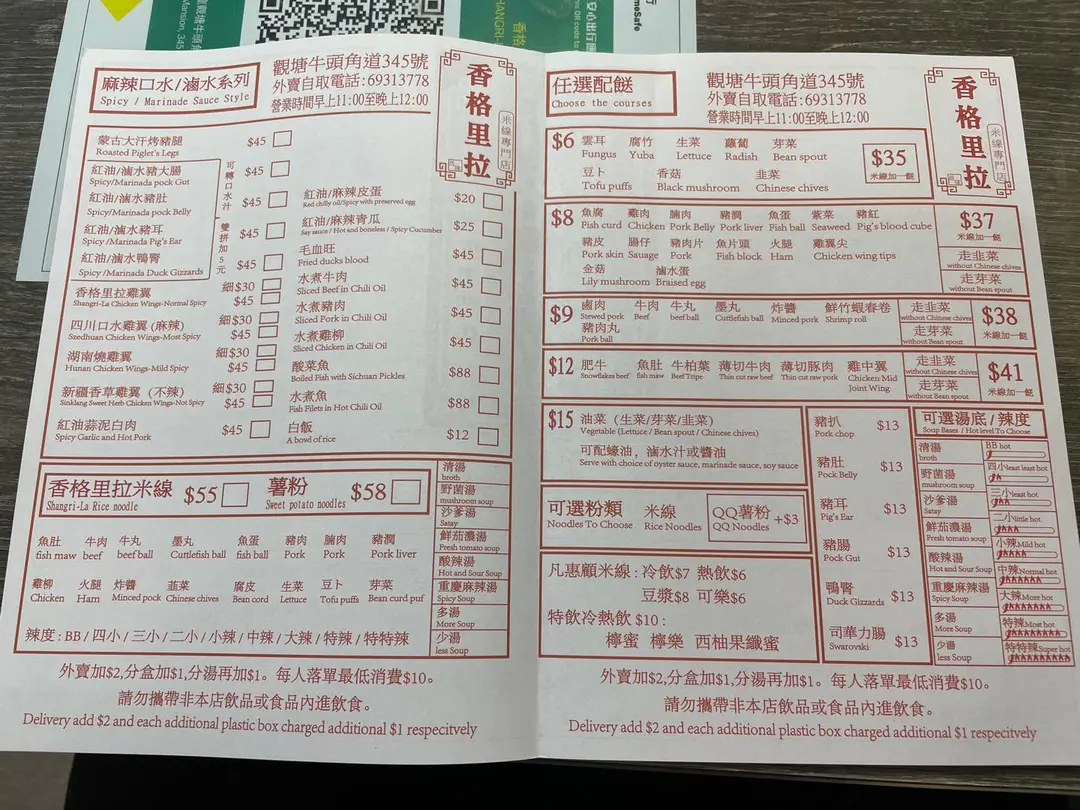 觀塘牛頭角
Mansion, 345
SHANGRI-L
香格
安心出行
meSafe
麻辣口水/滷水系列
Spicy / Marinade Sauce Style
觀塘牛頭角道345號
外賣自取電話:69313778
營業時間早上11:00至晚上12:00
香格里拉
米線專門店
蒙古大汗烤豬腿 $45
Roasted Piglet's Legs
紅油/滷水豬大腸 $45
Spicy/Marinada pock Gut
紅油/滷水豬肚 $45
Spicy/Marinada pock Belly
紅油/滷水豬耳 $45
Spicy /Marinada Pig's Ear
紅油/滷水鴨腎 $45
Spicy /Marinada Duck Gizzards
可轉口水汁
雙拼加5元
香格里拉雞翼 細$30
Shangri-La Chicken Wings-Normal Spicy $45
四川口水雞翼 (麻辣) 細$30
Szedhuan Chicken Wings-Most Spicy $45
湖南燒雞翼 細$30
Hunan Chicken Wings-Mild Spicy $45
新疆香草雞翼 (不辣) 細$30
Sinklang Sweet Herb Chicken Wings-Not Spicy $45
紅油蒜泥白肉 $45
Spicy Garlic and Hot Pork
紅油/麻辣皮蛋 $20
Red chilly oil/Spicy with preserved egg
紅油/麻辣青瓜 $25
Say sauce / Hot and boneless / Spicy Cucumber
毛血旺 $45
Fried ducks blood
水煮牛肉 $45
Sliced Beef in Chili Oil
水煮豬肉 $45
Sliced Pork in Chili Oil
水煮雞柳 $45
Sliced Chicken in Chili Oil
酸菜魚 $88
Boiled Fish with Sichuan Pickles
水煮魚 $88
Fish Filets in Hot Chili Oil
白飯 $12
A bowl of rice
香格里拉米線 $55 薯粉 $58
Shangri-La Rice noodle Sweet potato noodles
魚肚 牛肉 牛丸 墨丸 魚蛋 豬肉 腩肉 豬潤
fish maw beef beef ball Cuttlefish ball fish ball Pork Pork Pork liver
雞柳 火腿 炸醬 韮菜 腐皮 生菜 豆卜 芽菜
Chicken Ham Minced pock Chinese chives Bean cord Lettuce Tofu puffs Bean curd puf
辣度 : BB / 四小 / 三小 / 二小 / 小辣 / 中辣 / 大辣 / 特辣 / 特特辣
清湯
broth
野菌湯
mushroom soup
沙爹湯
Satay
鮮茄濃湯
Fresh tomato soup
酸辣湯
Hot and Sour Soup
重慶麻辣湯
Spicy Soup
多湯
More Soup
少湯
less Soup
外賣加$2,分盒加$1,分湯再加$1。每人落單最低消費$10。
請勿攜帶非本店飲品或食品內進飲食。
Delivery add $2 and each additional plastic box charged additional $1 respecitvely
任選配餸
Choose the courses
觀塘牛頭角道345號
外賣自取電話:69313778
營業時間早上11:00至晚上12:00
香格里拉
米線專門店
$6 雲耳 腐竹 生菜 蘿蔔 芽菜
Fungus Yuba Lettuce Radish Bean spout
豆卜 香菇 韭菜
Tofu puffs Black mushroom Chinese chives
$35
米線加一餸
$8 魚腐 雞肉 腩肉 豬潤 魚蛋 紫菜 豬紅
Fish curd Chicken Pork Belly Pork liver Fish ball Seaweed Pig's blood cube
豬皮 腸仔 豬肉片 魚片頭 火腿 雞翼尖
Pork skin Sauage Pork Fish block Ham Chicken wing tips
金菇 滷水蛋
Lily mushroom Braised egg
$37
米線加一餸
走韭菜
without Chinese chives
走芽菜
without Bean spout
$9 鹵肉 牛肉 牛丸 墨丸 炸醬 鮮竹蝦春卷
Stewed pork Beef beef ball Cuttlefish ball Minced pork Shrimp roll
豬肉丸
Pork ball
走韭菜
without Chinese chives
走芽菜
without Bean spout
$38
米線加一餸
$12 肥牛 魚肚 牛柏葉 薄切牛肉 薄切豚肉 雞中翼
Snowflakes beef fish maw Beef Tripe Thin cut raw beef Thin cut raw pork Chicken Mid
Joint Wing
走韭菜
without Chinese chives
走芽菜
without Bean spout
$41
米線加一餸
$15 油菜 (生菜/芽菜/韭菜)
Vegetable (Lettuce / Bean spout / Chinese chives)
可配蠔油, 滷水汁或醬油
Serve with choice of oyster sauce, marinade sauce, soy sauce
可選粉類 米線 QQ薯粉 +$3
Noodles To Choose Rice Noodles QQ Noodles
凡惠顧米線 : 冷飲$7 熱飲$6
豆漿$8 可樂$6
特飲冷熱飲 $10 :
檸蜜 檸樂 西柚果纖蜜
豬扒 $13
Pork chop
豬肚 $13
Pock Belly
豬耳 $13
Pig's Ear
豬腸 $13
Pock Gut
鴨腎 $13
Duck Gizzards
司華力腸 $13
Swarovski
可選湯底 / 辣度
Soup Bases / Hot level To Choose
清湯
broth
野菌湯
mushroom soup
沙爹湯
Satay
鮮茄濃湯
Fresh tomato soup
酸辣湯
Hot and Sour Soup
重慶麻辣湯
Spicy Soup
多湯
More Soup
少湯
less Soup
BB hot
四小least least hot
三小least hot
二小little hot
小辣Mild hot
中辣Normal hot
大辣More hot
特辣Most hot
特特辣Super hot
外賣加$2,分盒加$1,分湯再加$1。每人落單最低消費$10。
請勿攜帶非本店飲品或食品內進飲食。
Delivery add $2 and each additional plastic box charged additional $1 respecitvely